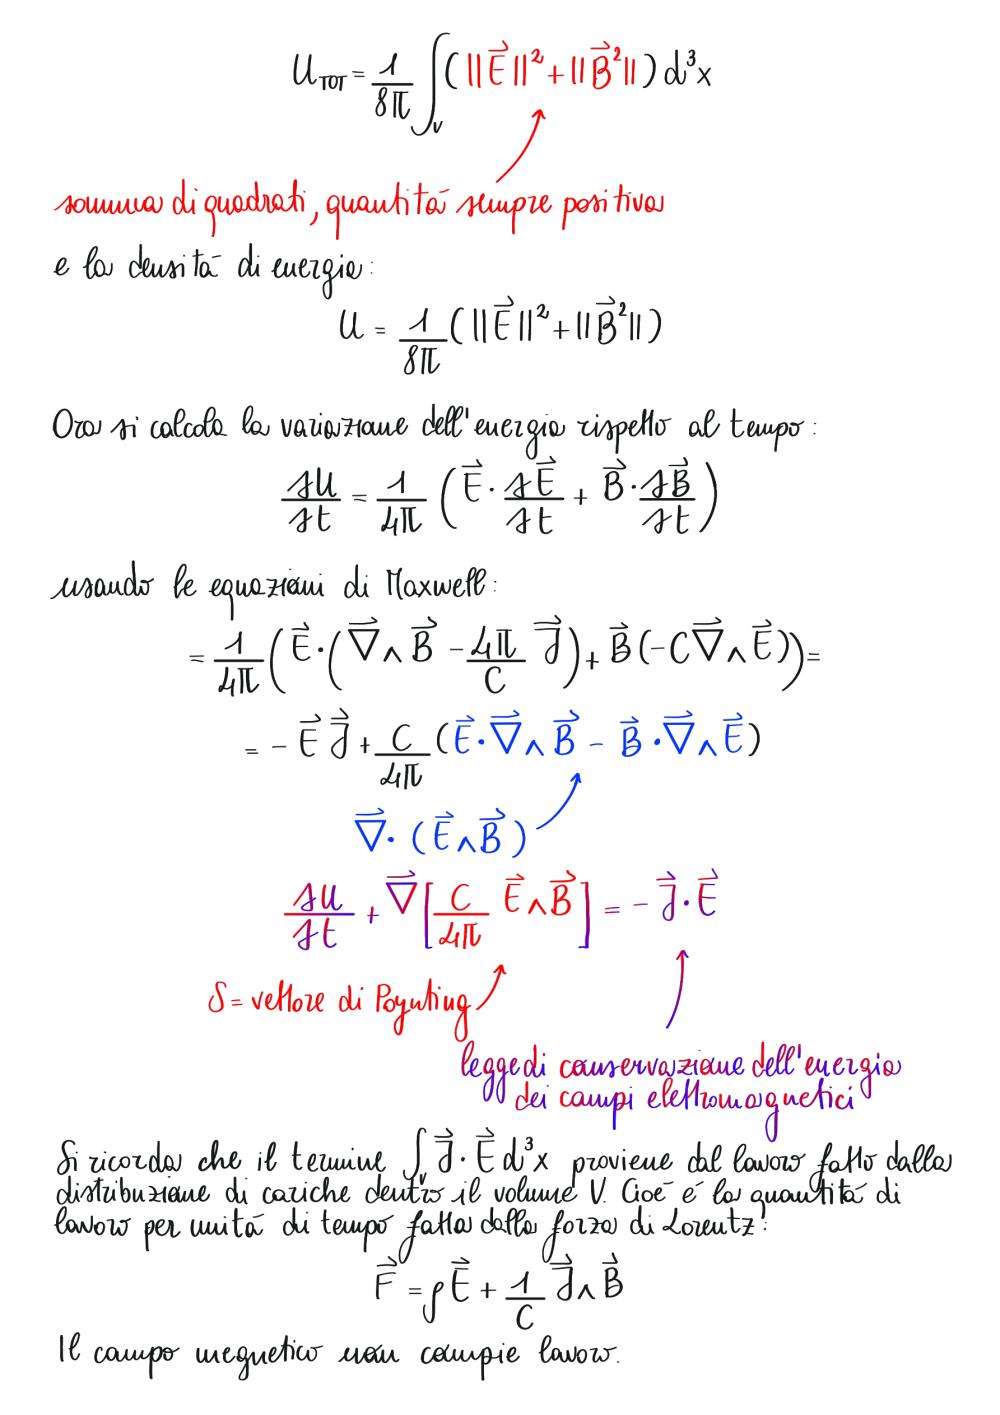 U_TOT = 1/8π ∫_V (||E⃗||² + ||B⃗²||) d³x
somma di quadrati, quantità sempre positiva
e la densità di energia:
U = 1/8π (||E⃗||² + ||B⃗²||)
Ora si calcola la variazione dell'energia rispetto al tempo:
∂U/∂t = 1/4π (E⃗ · ∂E⃗/∂t + B⃗ · ∂B⃗/∂t)
usando le equazioni di Maxwell:
= 1/4π (E⃗ · (∇⃗ ∧ B⃗ - 4π/C J⃗) + B⃗ (-C ∇⃗ ∧ E⃗)) =
= - E⃗ J⃗ + C/4π (E⃗ · ∇⃗ ∧ B⃗ - B⃗ · ∇⃗ ∧ E⃗)
∇⃗ · (E⃗ ∧ B⃗)
∂U/∂t + ∇⃗ [C/4π E⃗ ∧ B⃗] = - J⃗ · E⃗
S = vettore di Poynting
legge di conservazione dell'energia
dei campi elettromagnetici
Si ricorda che il termine ∫_V J⃗ · E⃗ d³x proviene dal lavoro fatto dalla
distribuzione di cariche dentro il volume V. Cioè è la quantità di
lavoro per unità di tempo fatta dalla forza di Lorentz:
F⃗ = ρE⃗ + 1/C J⃗ ∧ B⃗
Il campo megnetico non compie lavoro.